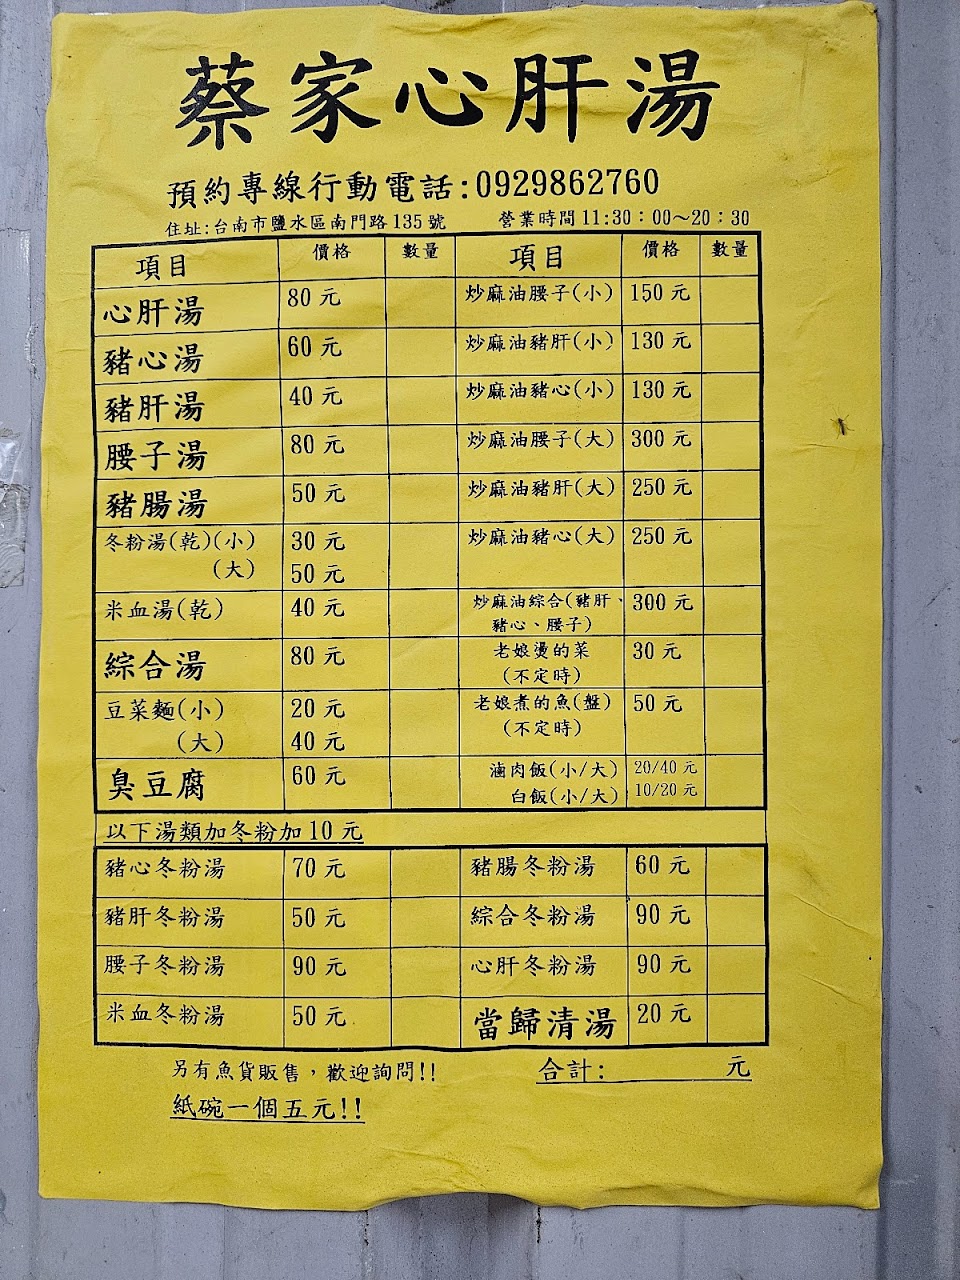 蔡家心肝湯
預約專線行動電話:0929862760
住址:台南市鹽水區南門路135號 營業時間11:30：00～20：30
項目 價格 數量 項目 價格 數量
心肝湯 80元 炒麻油腰子(小) 150元
豬心湯 60元 炒麻油豬肝(小) 130元
豬肝湯 40元 炒麻油豬心(小) 130元
腰子湯 80元 炒麻油腰子(大) 300元
豬腸湯 50元 炒麻油豬肝(大) 250元
冬粉湯(乾)(小) 30元 炒麻油豬心(大) 250元
(大) 50元
米血湯(乾) 40元 炒麻油綜合(豬肝、 300元
豬心、腰子)
綜合湯 80元 老娘燙的菜 30元
(不定時)
豆菜麵(小) 20元 老娘煮的魚(盤) 50元
(大) 40元 (不定時)
臭豆腐 60元 滷肉飯(小/大) 20/40元
白飯(小/大) 10/20元
以下湯類加冬粉加10元
豬心冬粉湯 70元 豬腸冬粉湯 60元
豬肝冬粉湯 50元 綜合冬粉湯 90元
腰子冬粉湯 90元 心肝冬粉湯 90元
米血冬粉湯 50元 當歸清湯 20元
另有魚貨販售，歡迎詢問!! 合計: 元
紙碗一個五元!!